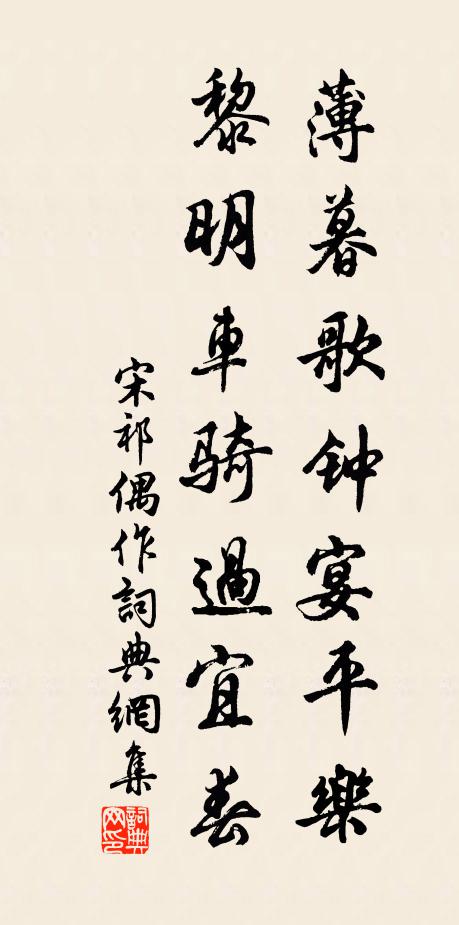 薄暮歌钟宴平樂
黎明車騎過宜春
宋祁偶作詞典網集
詞典網印